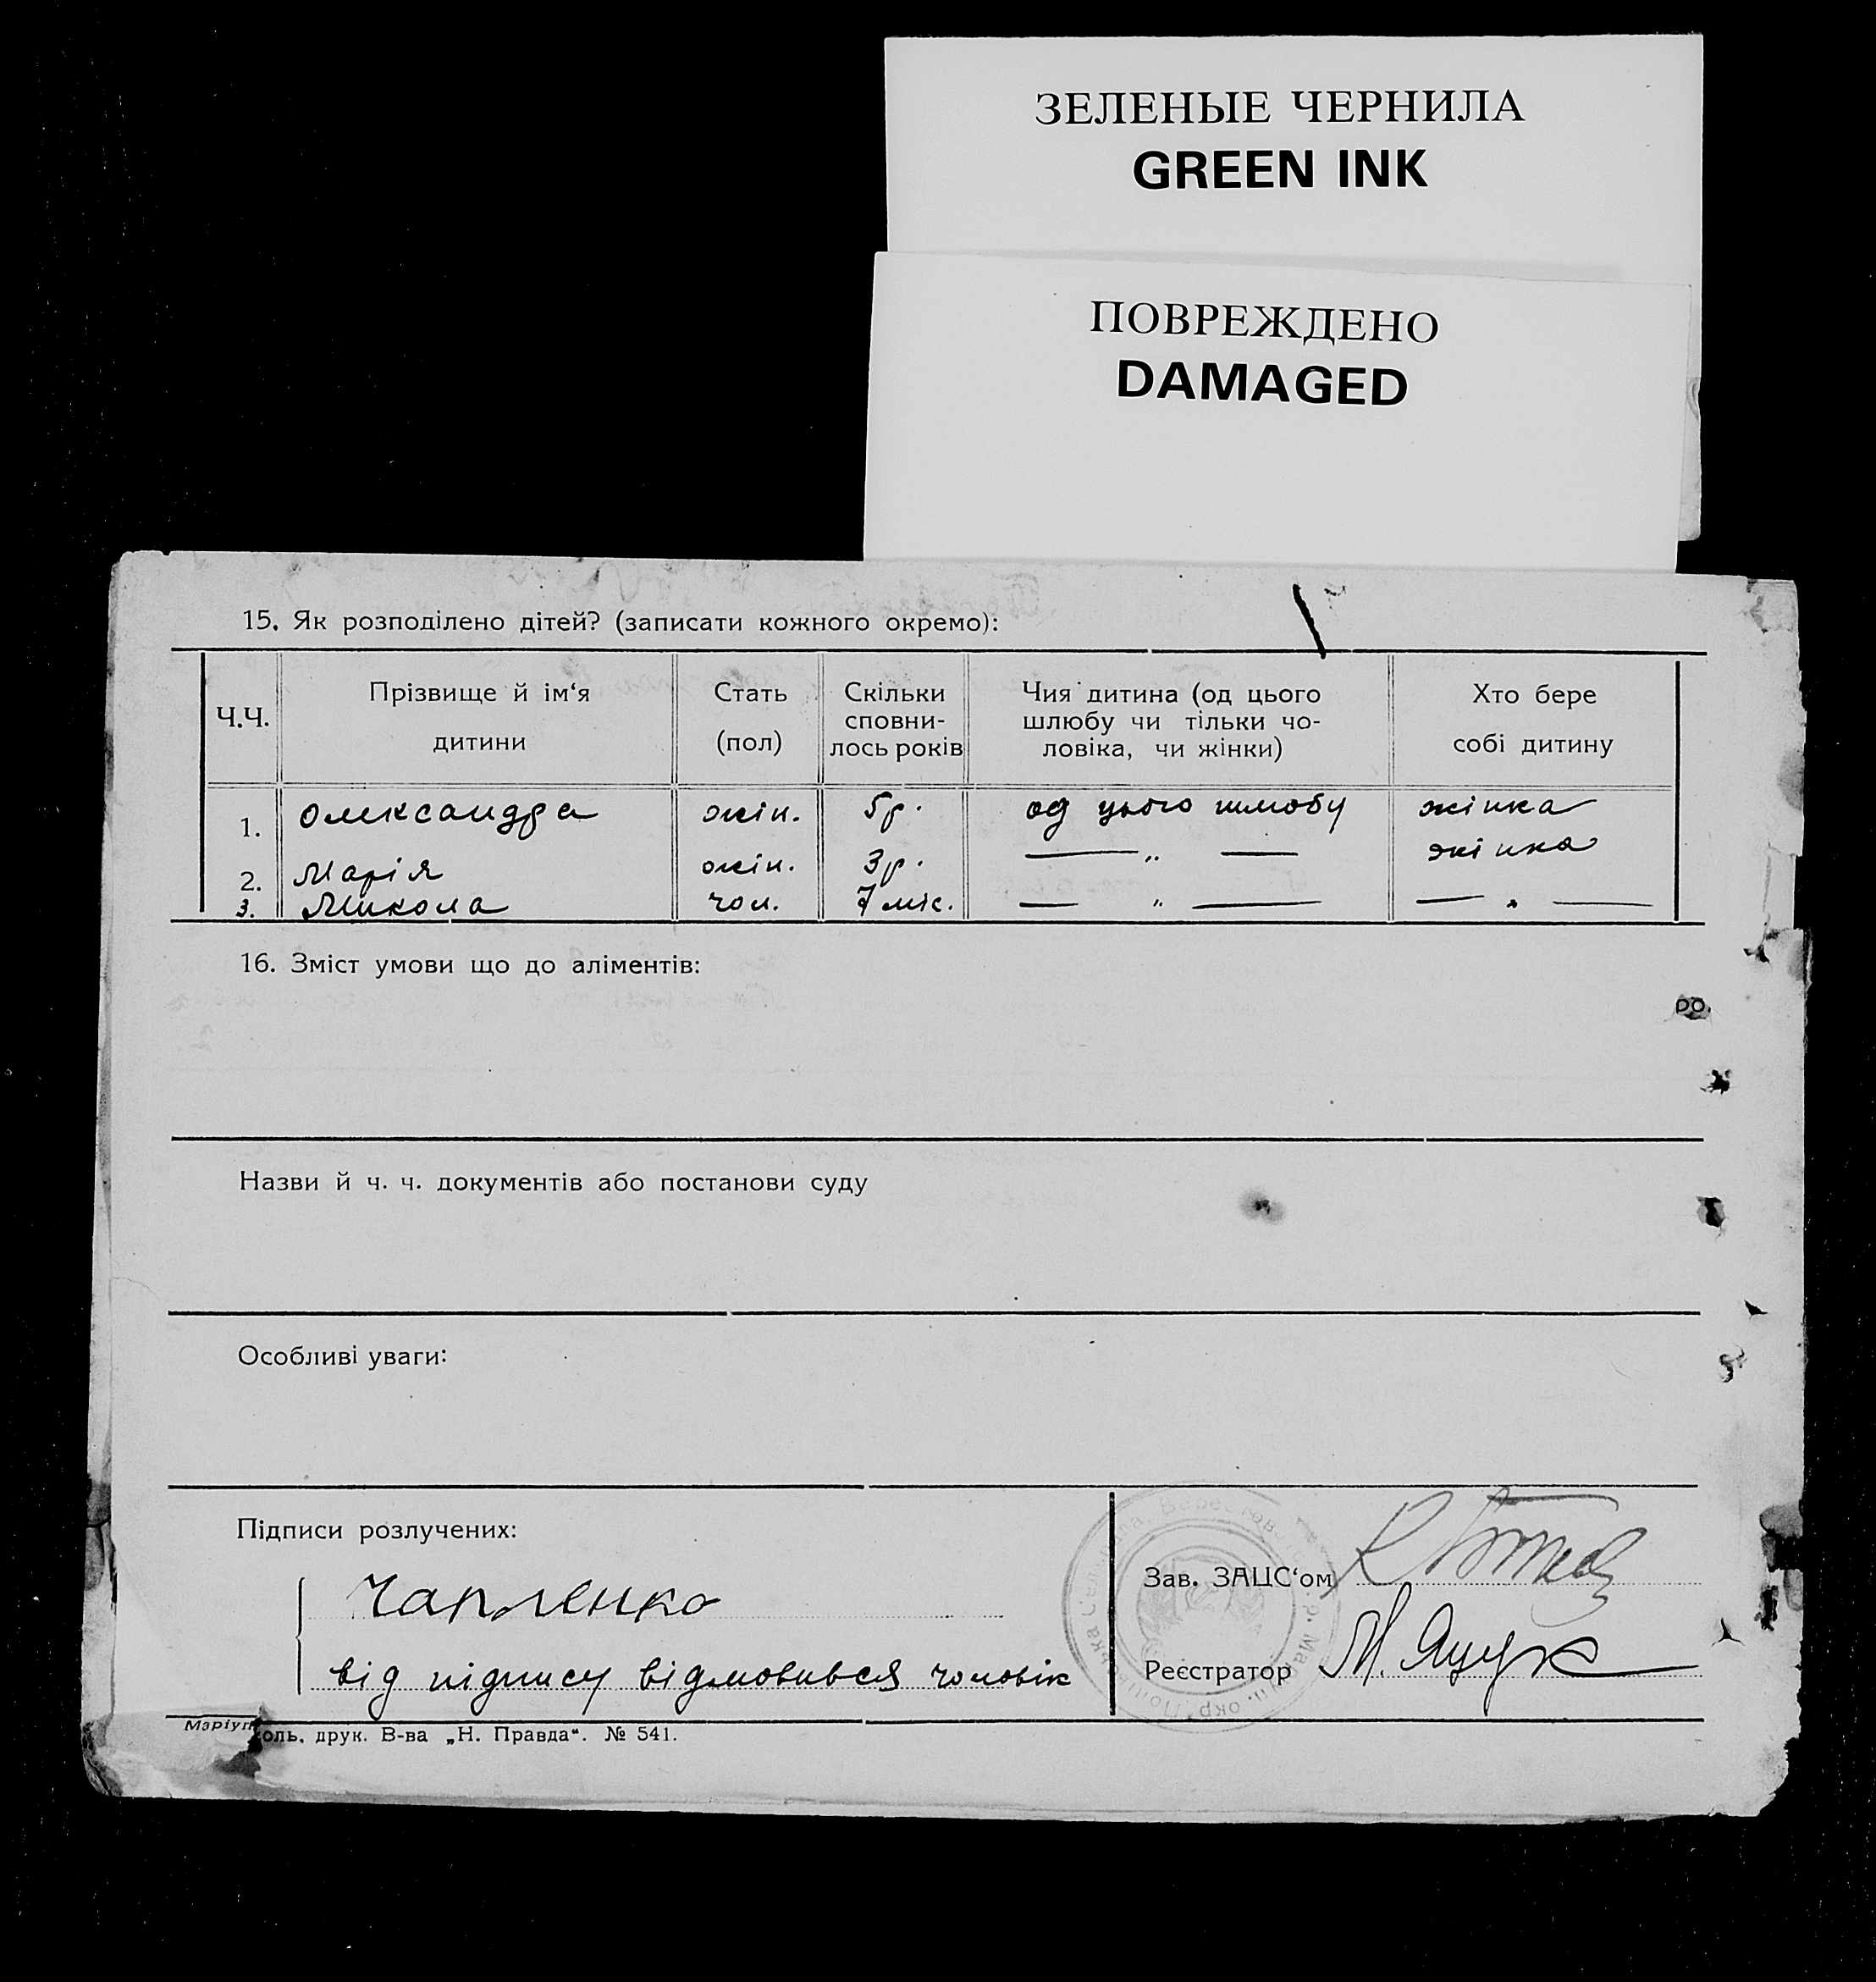 ЗЕЛЕНЫЕ ЧЕРНИЛА
GREEN INK
ПОВРЕЖДЕНО
DAMAGED
15. Як розподілено дітей? (записати кожного окремо):
Ч.Ч. Прізвище й ім‘я дитини Стать (пол) Скільки сповни-лось років Чия дитина (од цього шлюбу чи тільки чо-ловіка, чи жінки) Хто бере собі дитину
1. Олександра жін. 5 р. од цього шлюбу жінка
2. Марія жін. 3 р. — „ — жінка
3. Микола чол. 7 міс. — „ — — „ —
16. Зміст умови що до аліментів:
ро.
Назви й ч. ч. документів або постанови суду
Особливі уваги:
Підписи розлучених:
Чапленко
від підпису відмовився чоловік
Зав. ЗАЦС‘ом
Реєстратор М. Яцук
Маріуполь, друк. В-ва „Н. Правда“. № 541.